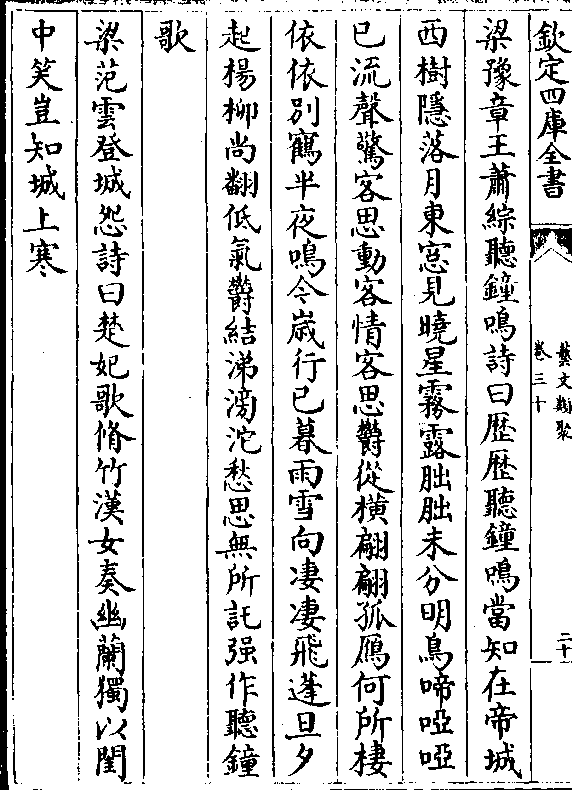 欽定四庫全書
藝文類聚
卷三十
二十
梁豫章王蕭綜聽鐘鳴詩曰歴歴聽鐘鳴當知在帝城
西樹隱落月東窓見曉星霧露朏朏未分明鳥啼啞啞
已流聲驚客思動客情客思鬱從横翩翩孤鴈何所棲
依依别鶴半夜鳴今嵗行已暮雨雪向凄凄飛蓬旦夕
起楊柳尚翻低氣鬱結涕滂沱愁思無所託强作聽鐘
歌
梁范雲登城怨詩曰楚妃歌脩竹漢女奏幽蘭獨以閨
中笑豈知城上寒